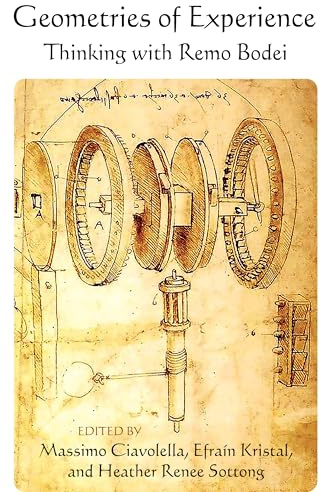 Geometries of Experience
Thinking with Remo Bodei
A
A
EDITED BY
Massimo Ciavolella, Efraín Kristal,
and Heather Renee Sottong